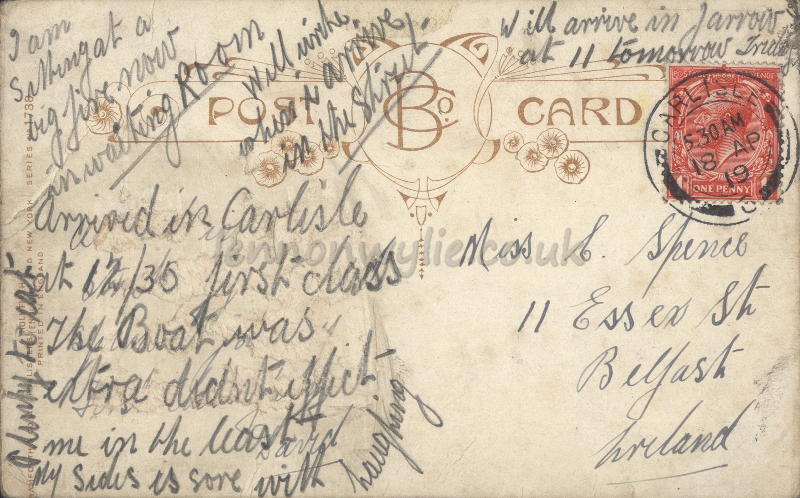 I am
Sitting at a
big fire now
in waiting Room
Will write
when I arrive
in the Street
Will arrive in Jarrow
at 11 tomorrow Friday
POST CARD
B Co.
CARLISLE
5.30 AM
18 AP
19
ONE PENNY
Arrived in Carlisle
at 12/35 first class
The Boat was
extra didnt effect
me in the least
David
My Sides is sore with
laughing
Plenty to eat
Miss E. Spence
11 Essex St
Belfast
Ireland
SERIES No 1738
PRINTED IN ENGLAND
lennonwylie.co.uk